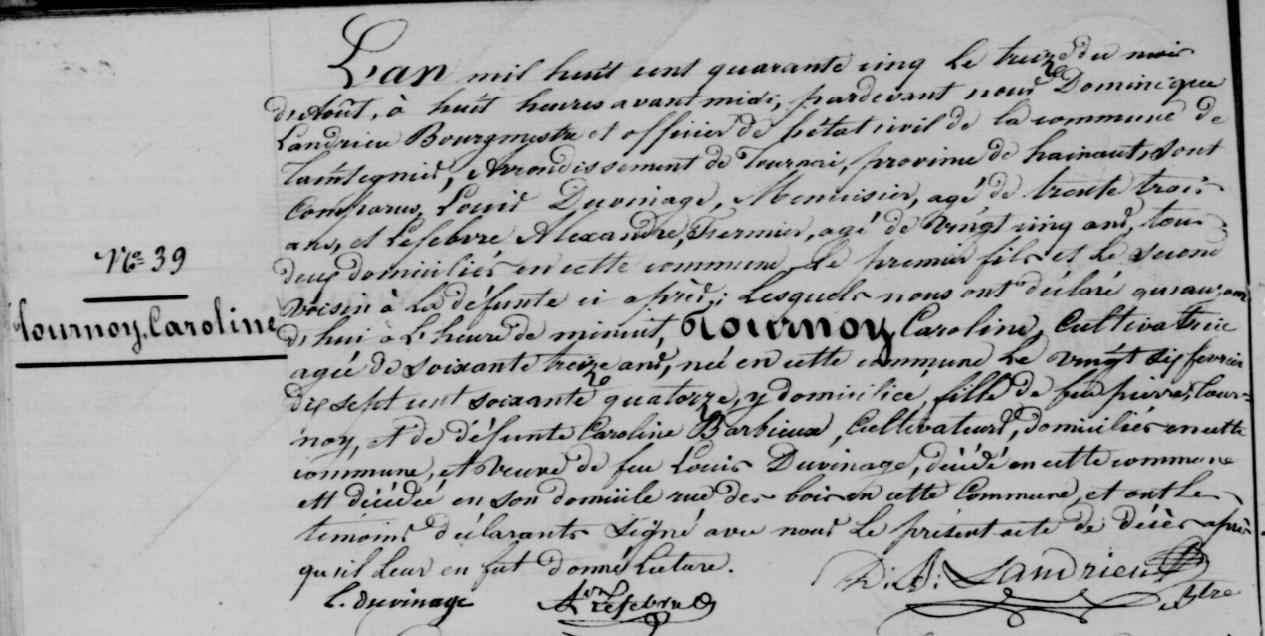 L'an mil huit cent quarante cinq le treize du mois
d'Août, à huit heures avant midi, pardevant nous Dominique
Landrieu Bourgmestre et officier de l'état civil de la commune de
Taintegnies, Arrondissement de Tournai, province de hainaut, sont
Comparus, Louis Duvinage, Menuisier, agé de trente trois
ans, et Lefebvre Alexandre, Fermier, agé de vingt cinq ans, tous
deux domiciliés en cette commune Le premier fils et le second
voisin à la défunte ci après; Lesquels nous ont déclaré qu'aujour
N° 39
d'hui à l'heure de minuit, Tournoy Caroline, Cultivatrice
Tournoy, Caroline
agée de soixante treize ans, née en cette commune Le vingt six fevrier
dix sept cent soixante quatorze, y domiciliée, fille de feu pierre, Tour-
noy, et de défunte Caroline Barbieux, Cultivateurs, domiciliés en cette
commune, et veuve de feu Louis Duvinage, décédé en cette commune
est décédée en son domicile rue des bois en cette Commune, et ont les
temoins déclarants signé avec nous le présent acte de décès après
qu'il leur en fut donné lecture.
L. duvinage
Lefebvre
D. Landrieu
Btre